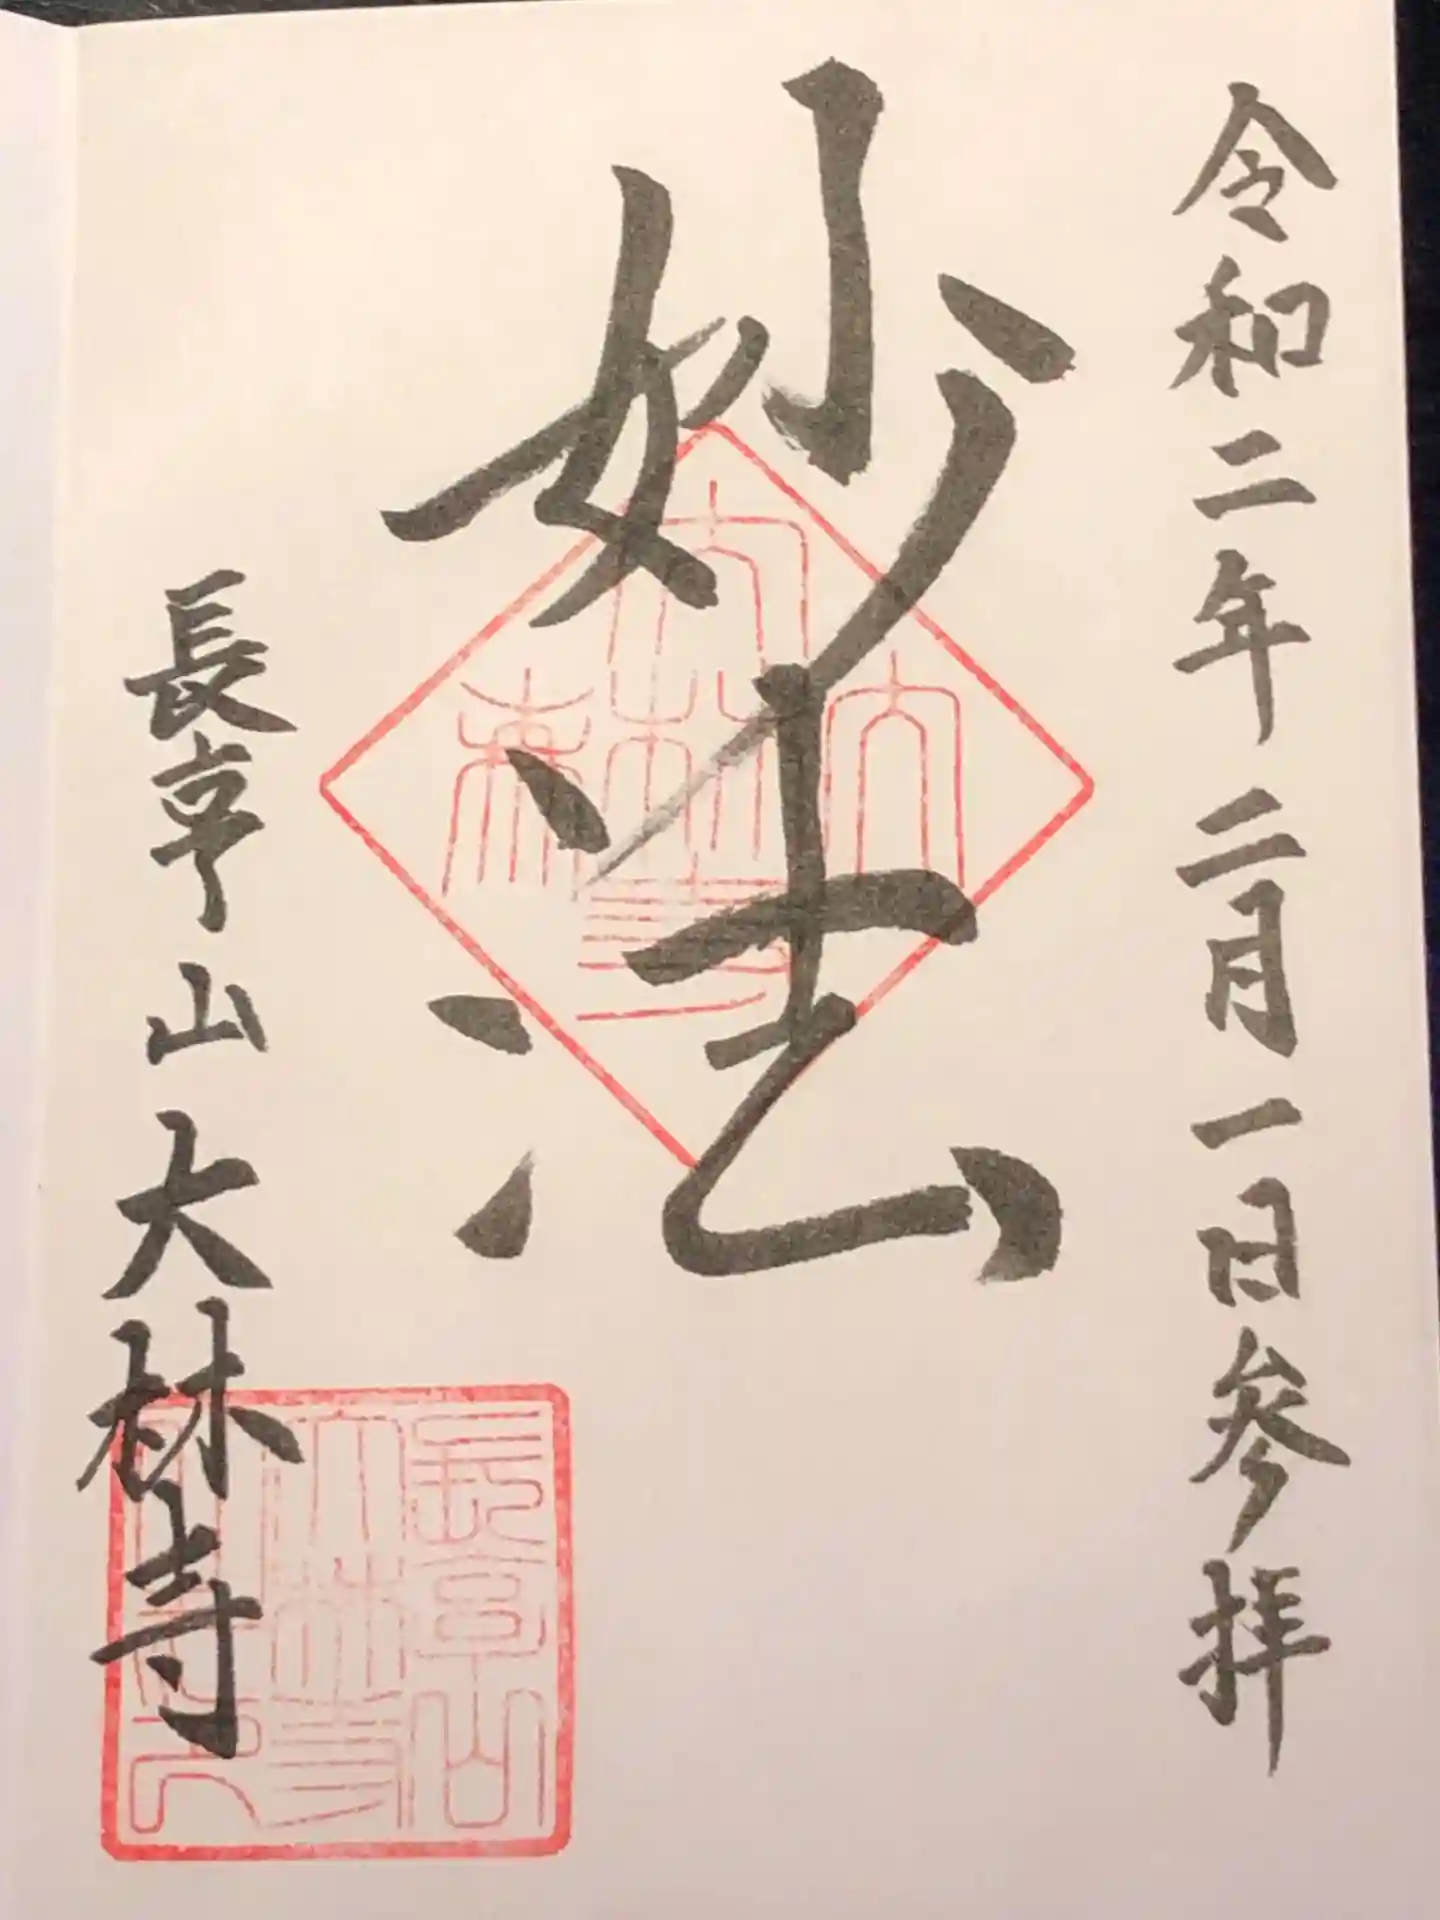 令和二年二月一日参拝
妙法
長亨山大林寺
長亨山
大林寺